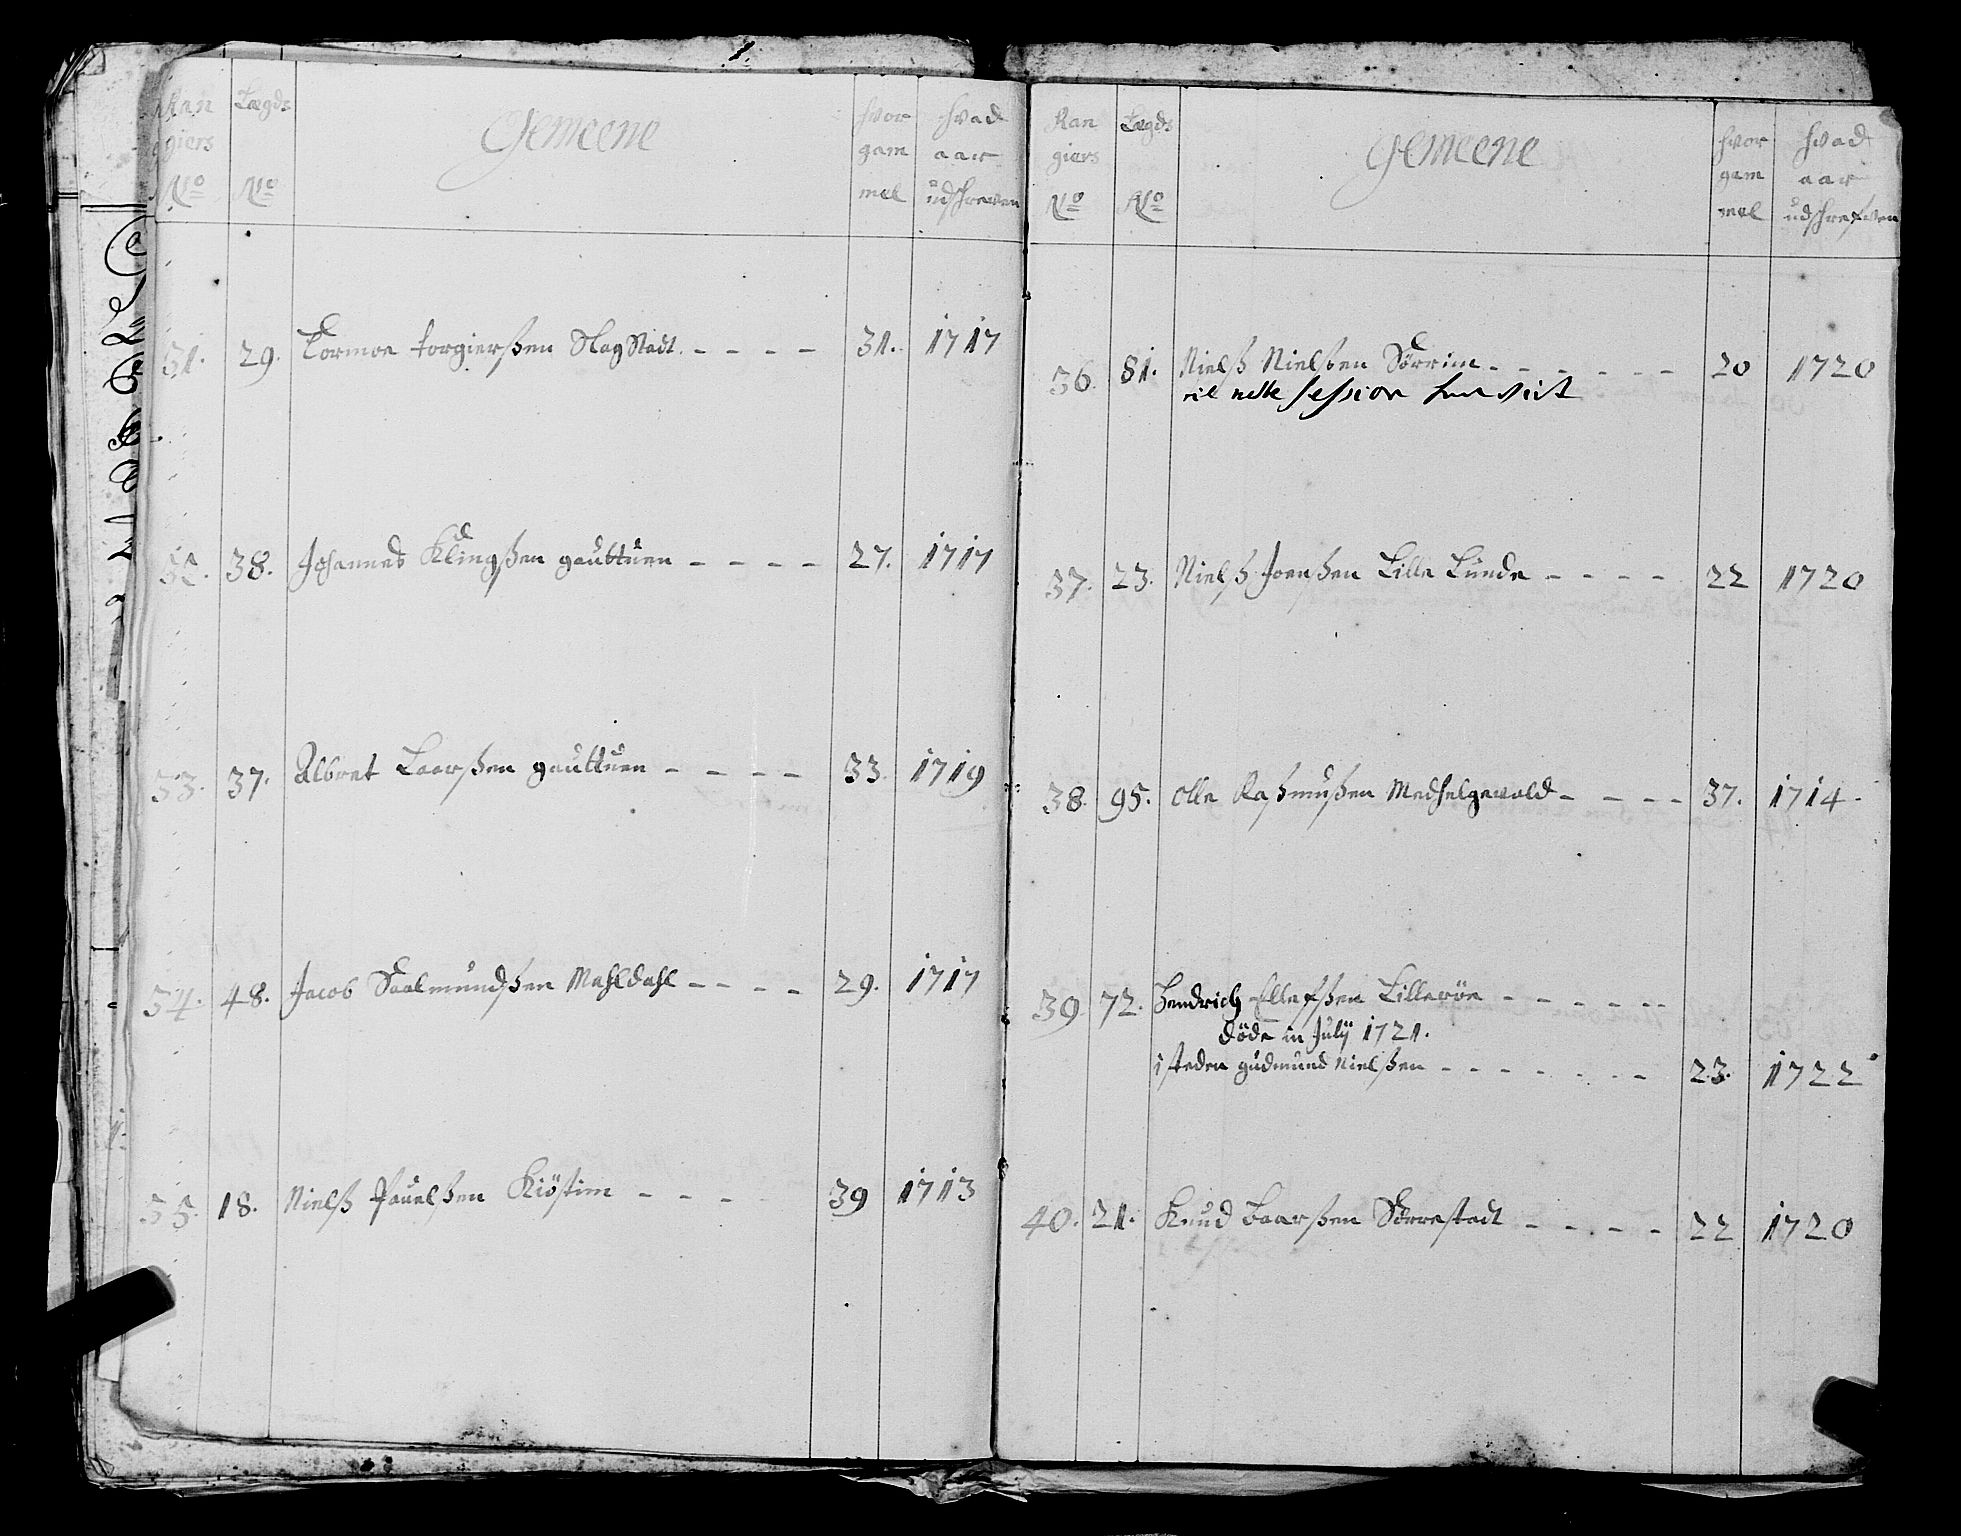 Ran
giers
No
Lægds
No
Gemeene
hvor
gam
mel
hvad
aar
udschreven
31. 29. Tormoe torgierßen SlagStadt. - - - - 31. 1717
32. 38. Johannes Klingßen gauttuen - - - - 27. 1717
33. 37. Albret Laarßen gauttuen - - - - 33. 1719
34. 48. Jacob Saalmundßen Mahldahl - - - - 29. 1717
35. 18. Nielß Pauelßen Kiöstim - - - - 39 1713
Ran
giers
No
Lægds
No
Gemeene
hvor
gam
mel
hvad
aar
udschrefven
36. 81. Nielß Nielßen Sörrim - - - - - - 20 1720
session
37. 23. Nielß Joenßen Lille Lunde - - - - 22 1720
38. 95. Olle Raßmußen Medhelgevold - - - - 37. 1714
39 72. Hendrich Ellefßen Lilleröe - - - - - -
döde in Julij 1721.
isteden gudmund Nielßen - - - - - - 23. 1722
40. 21. Knud Laarßen Sörrestadt - - - - 22 1720